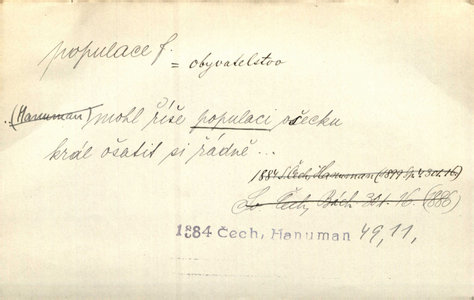 populace f.
= obyvatelstvo
(Hanuman) mohl říše populaci všecku
král ošatit si řádně ...
1884 S. Čech, Hanuman (1899 Sp. 4. 301.16)
Sv. Čech, Bách. 301.16. (1886)
1884 Čech, Hanuman 49,11,